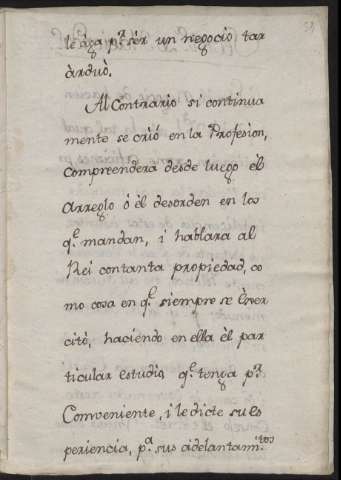 le àga p.ª sér un negocio tan
àrduò.
Al Contrario si continua
mente se criò en la Profesion,
Comprenderà desde luego èl
arreglo ò èl desorden en los
q.ᵉ mandan, i hablara al
Rei contanta propiedad, co
mo cosa en q.ᵉ siempre se èxer
citò, haciendo en ella èl par
ticular estudio q.ᵉ tenga p.ʳ
Conveniente, i le dicte su es
periencia, p.ª sus adelantam.ᵗᵒˢ